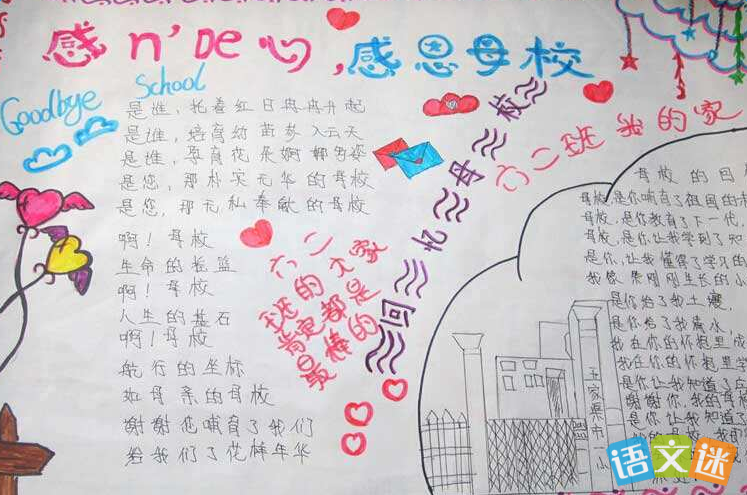 感n'De心,感恩母校
Goodbye School
是谁,托着红日冉冉升起
是谁,培育幼苗参入云天
是谁,孕育花朵婀娜多姿
是您,那朴实无华的母校
是您,那无私奉献的母校
啊!母校
生命的长篮
啊!母校
人生的基石
啊!母校
航行的坐标
如母亲的母校
谢谢您哺育了我们
给我们了花样年华
六二
班的大家
都是
最棒的
回忆母校
六二班 我的家
母校的
母校,是你哺育了祖国的
母校,是你教育了下一代,
母校,是你让我学到了知
是你,让我懂得了学习的
是你给了我土壤,
是你给了我滴水,
我在你的怀抱里成
我在你的怀抱里学
是你让我知道了
谢谢你,我的母校
是你让我知道了
语文迷